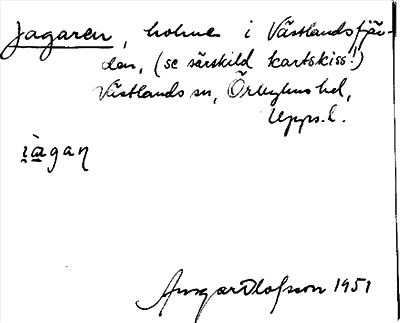 Jagaren, holme i Västlandsfjär-
den, (se särskild kartskiss!)
Västlands sn, Örbyhus hd,
Upps. l.
i̯àgan
Ansgar Olofsson 1951